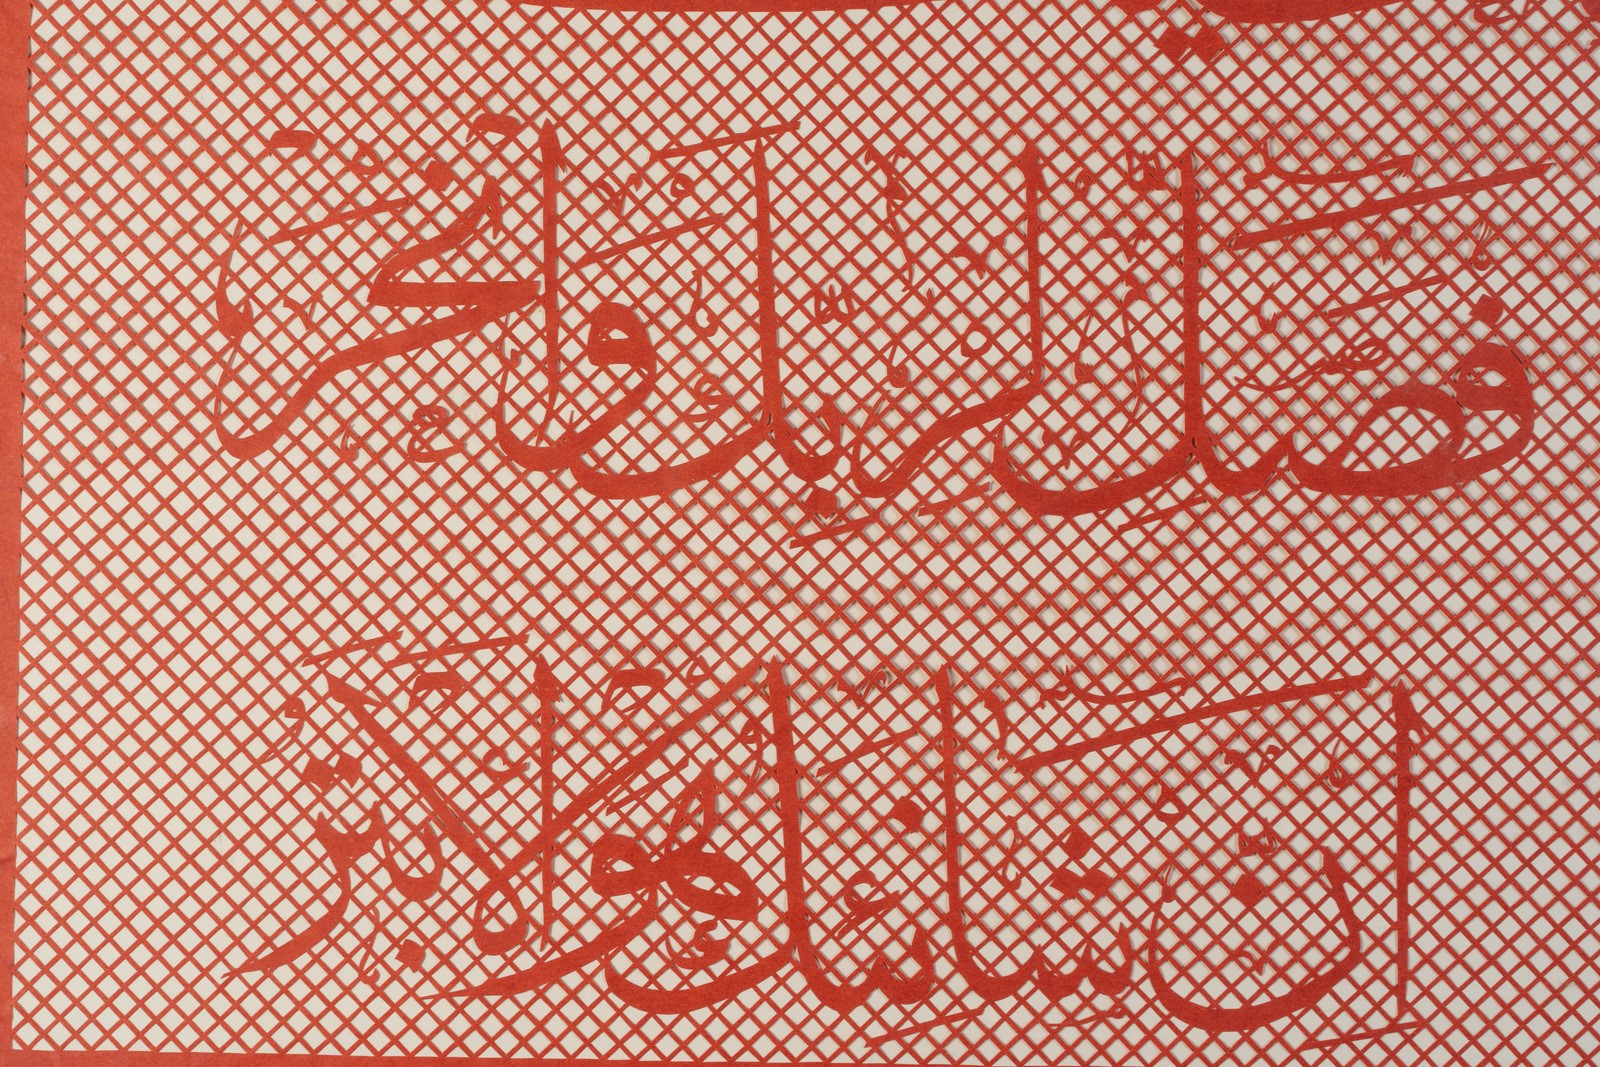 فَصَلِّ لِرَبِّكَ وَانْحَرْ
إِنَّ شَانِئَكَ هُوَ الْأَبْتَرُ